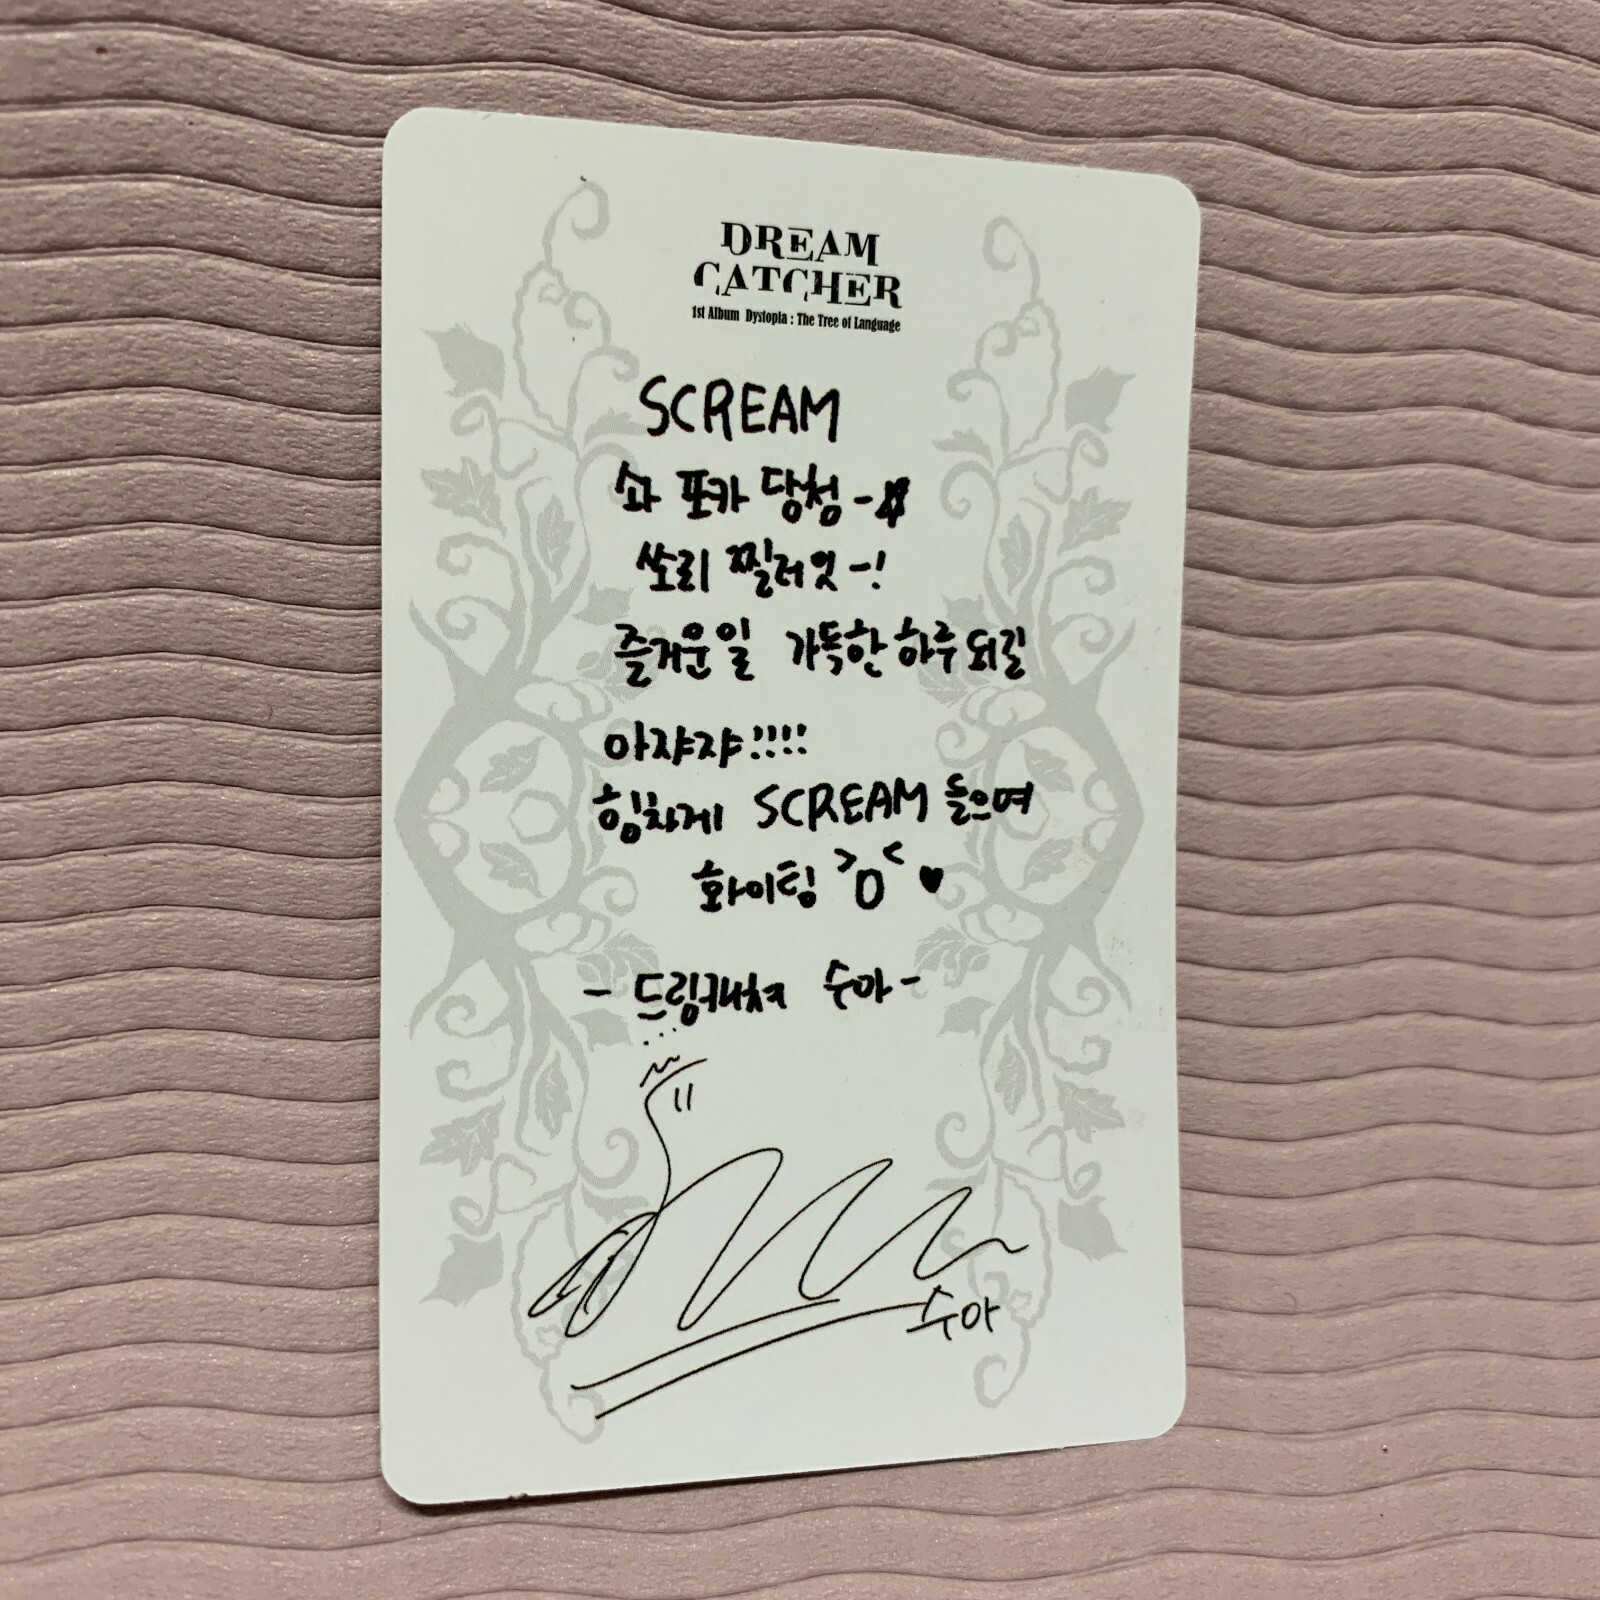 DREAM
CATCHER
1st Album Dystopia : The Tree of Language
SCREAM
솨 포카 당청-☆
쏘리 찔러엇-!
즐거운일 가득한 하루 되길
아쟈쟈!!!!
힘차게 SCREAM 들으며
화이팅 >O< ♥
- 드림캐쳐 수아 -
수아